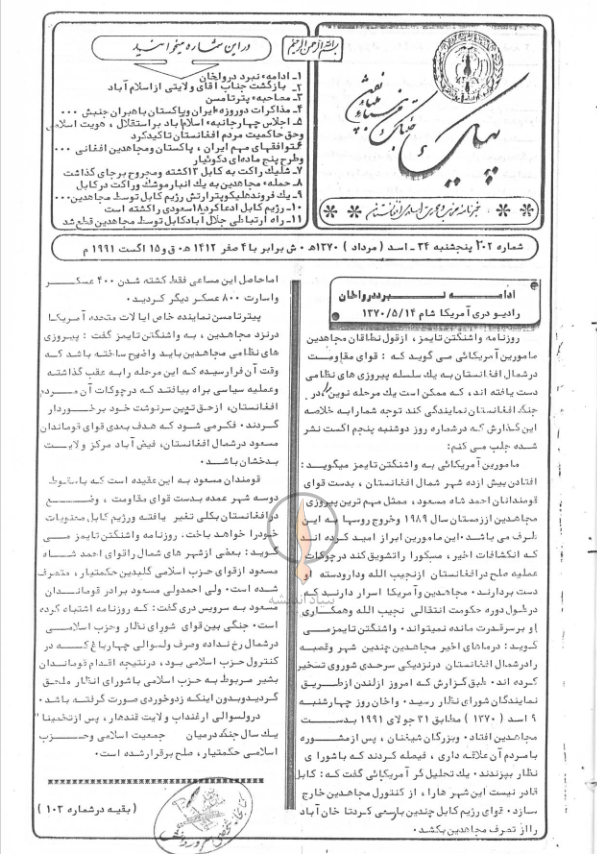 بسم الله الرحمن الرحیم
در این شماره میخوانید
۱ـ ادامهٔ نبرد در واخان
۲ـ بازگشت جناب آقای ولایتی از اسلام آباد
۳ـ مصاحبهٔ پترتامسن
۴ـ مذاکرات دوروزهٔ ایران وپاکستان باهبران جنبش ۰۰۰
۵ـ اجلاس چهارجانبهٔ اسلام آباد براستقلال ، هویت اسلامی
وحق حاکمیت مردم افغانستان تاکیدکرد
۶ـ توافقهای مهم ایران ، پاکستان ومجاهدین افغانی ۰۰۰
وطرح پنج ماده‌ای دکوئیار
۷ـ شلیک راکت به کابل ۱۲کشته ومجروح برجای گذاشت
۸ـ حملهٔ مجاهدین به یك انبار موشك وراکت درکابل
۹ـ یك فروند هلیکوپترارتش رژیم کابل توسط مجاهدین۰۰۰
۱۰ـ رژیم کابل ادعاکرد۱۸سعودی راکشته است
۱۱ـ راه ارتباطی جلال آبادکابل توسط مجاهدین قطع شد
پیام
شماره ۲۰۲ پنجشنبه ۲۴ ـ اسد ( مرداد ) ۱۳۷۰ه‍ ۰ ش برابر با ۴ صفر ۱۴۱۲ ه‍ ۰ ق و ۱۵ اگست ۱۹۹۱ م
ادامهٔ نبرد درواخان
رادیو دری آمریکا شام ۱۳۷۰/۵/۱۴
روزنامه واشنگتن تایمز ، ازقول نطاقان مجاهدین
مامورین آمریکائی می گوید که : قوای مقاومت
درشمال افغانستان به یك سلسله پیروزی های نظامی
دست یافته اند ، که ممکن است یك مرحله نوین در
جنگ افغانستان نمایندگی کند توجه شمارابه خلاصه
این گذارش که درشماره روز دوشنبه پنجم اگست نشر
شده جلب می کنم :
مامورین آمریکائی به واشنگتن تایمز میگوید :
افتادن بیش ازده شهر شمال افغانستان ، بدست قوای
قوماندانان احمد شاه مسعود ، ممثل مهم ترین پیروزی
مجاهدین اززمستان سال ۱۹۸۹ وخروج روسها به این
طرف می باشد ۰ این مامورین ابراز امید کرده اند
که انکشافات اخیر ، مسکورا راتشویق کند درچوکات
عملیه صلح درافغانستان ازنجیب الله وداروسته او
دست بردارند ۰ مجاهدین وآمریکا اسرار دارند که
درطول دوره حکومت انتقالی نجیب الله وهمکاری
او برسرقدرت مانده نمیتواند ۰ واشنگتن تایمزمی
گوید : درماهای اخیر مجاهدین چندین شهر وقصبه
رادرشمال افغانستان درنزدیکی سرحدی شوروی تسخیر
کرده اند ۰ طبق گزارش که امروز ازلندن ازطریق
نمایندگان شورای نظار رسید ۰ واخان روز چهارشنبه
۹ اسد ( ۱۳۷۰ ) مطابق ۳۱ جولای ۱۹۹۱ بدست
مجاهدین افتاد ۰ وبزرگان شیغنان ، پس ازمشوره
بامردم آن علاقه داری ، فیصله کردند که باشورای
نظار بپزندند ۰ یك تحلیل گر آمریکائی گفت که : کابل
قادر نیست این شهر هارا ، از کنترول مجاهدین خارج
سازد ۰ قوای رژیم کابل چندین بارسعی کردتا خان آباد
رااز تصرف مجاهدین بکشد ۰
اماحاصل این مساعی فقط کشته شدن ۴۰۰ عسکر
واسارت ۸۰۰ عسکر دیگر گردید ۰
پیترتامسن نماینده خاص ایالات متحده آمریکا
درنزد مجاهدین ، به واشنگتن تایمز گفت : پیروزی
های نظامی مجاهدین باید واضح ساخته باشد که
وقت آن فرارسیده که این مرحله رابه عقب گذاشته
وعملیه سیاسی براه بیافتد که درچوکات آن مردم
افغانستان ، ازحق تعین سرنوشت خود برخوردار
گردند ۰ فکرمی شود که هدف بعدی قوای قوماندان
مسعود درشمال افغانستان ، فیض آباد مرکز ولایت
بدخشان باشد ۰
قومندان مسعود به این عقیده است که باسقوط
دوسه شهر عمده بدست قوای مقاومت ، وضع
درافغانستان بکلی تغیر یافته ورژیم کابل معنویات
خودرا خواهد باخت ۰ روزنامه واشنگتن تایمز می
گوید : بعضی ازشهر های شمال راقوای احمد شاه
مسعود ازقوای حزب اسلامی گلبدین حکمتیار ، متصرف
شده است ۰ ولی احمدولی مسعود برادر قوماندان
مسعود به سرویس دری گفت : که روزنامه اشتباه کرده
است ۰ جنگی بین قوای شورای نظار وحزب اسلامی
درشمال رخ نداده وصرف ولسوالی چهارباغ کـه در
کنترول حزب اسلامی بود ، درنتیجه اقدام قوماندان
بشیر مربوط به حزب اسلامی باشورای انظار ملحق
گردیدوبدون اینکه زدوخوردی صورت گرفته باشد ۰
درولسوالی ارغنداب ولایت قندهار ، پس ازتخمینا"
یك سال جنگ درمیان جمعیت اسلامی وحزب
اسلامی حکمتیار ، صلح برقرارشده است ۰
( بقیه درشماره ۱۰۳ )
بنیاد اندیشه